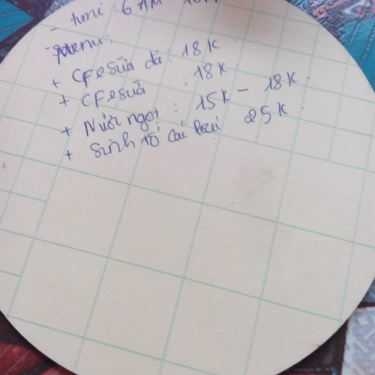 - time: 6 AM
- Menu:
+ CFe sữa đá : 18K
+ CFe sữa : 18K
+ Nước ngọt : 15K - 18K.
+ Sinh tố các loại 25K.